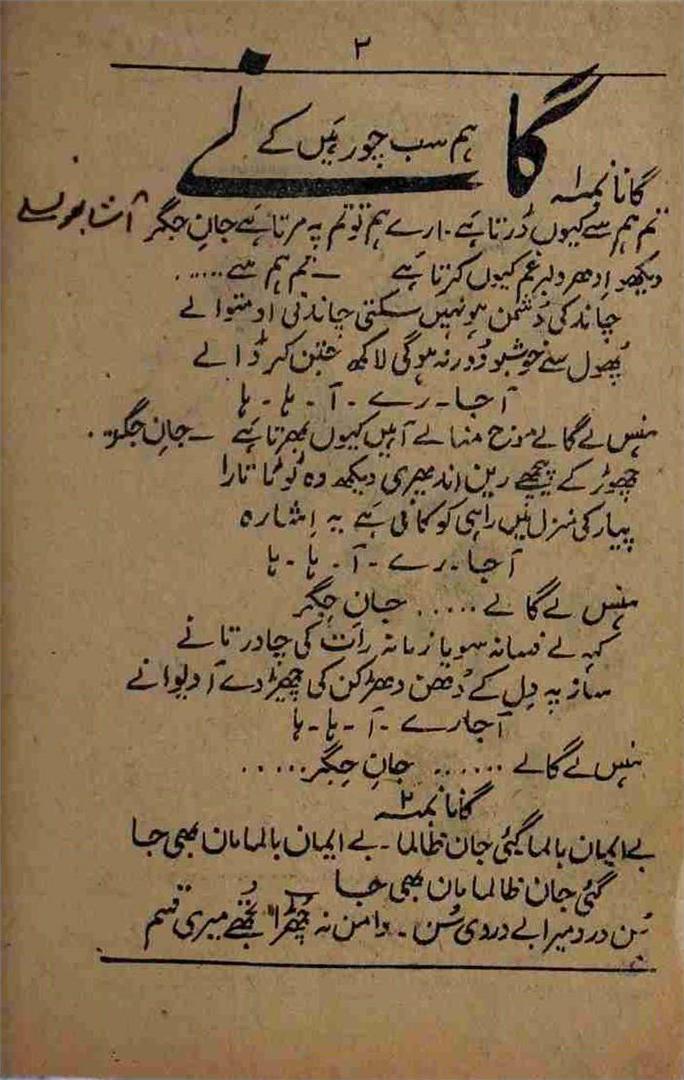 ۲
گانے
ہم سب چور ہیں کے
گانا نمبر ۱
آشا بھونسلے
تم ہم سے کیوں ڈرتا ہے ۔ ارے ہم تو تم پہ مرتا ہے جانِ جگر
دیکھو اِدھر دلبر غم کیوں کرتا ہے ۔ تم ہم سے .....
چاند کی دشمن ہو نہیں سکتی چاندنی او متوالے
پُھول سے خوشبو دُور نہ ہوگی لاکھ جتن کر ڈالے
آ جا ۔ رے ۔ آ ۔ ہا ۔ ہا
ہنس لے گالے موج منالے آہیں کیوں بھرتا ہے ۔ جانِ جگر ..
چھوڑ کے پیچھے رین اندھیری دیکھ وہ ٹوٹا تارا
پیار کی منزل میں راہی کو کافی ہے یہ اِشارہ
آ جا ۔ رے ۔ آ ۔ ہا ۔ ہا
ہنس لے گالے ..... جانِ جِگر
کہہ لے فسانہ سویا زمانہ رات کی چادر تانے
ساز پہ دِل کے دُھن دھڑکن کی چھیڑ دے آ دیوانے
آ جا رے ۔ آ ۔ ہا ۔ ہا
ہنس لے گالے ...... جانِ جِگر .....
گانا نمبر ۲
بے ایمان بالما گئی جان ظالما ۔ بے ایمان بالما مان بھی جا
گئی جان ظالما مان بھی جا
سُن درد میرا بے دردی سُن ۔ دامن نہ چُھڑا تُجھے میری قسم